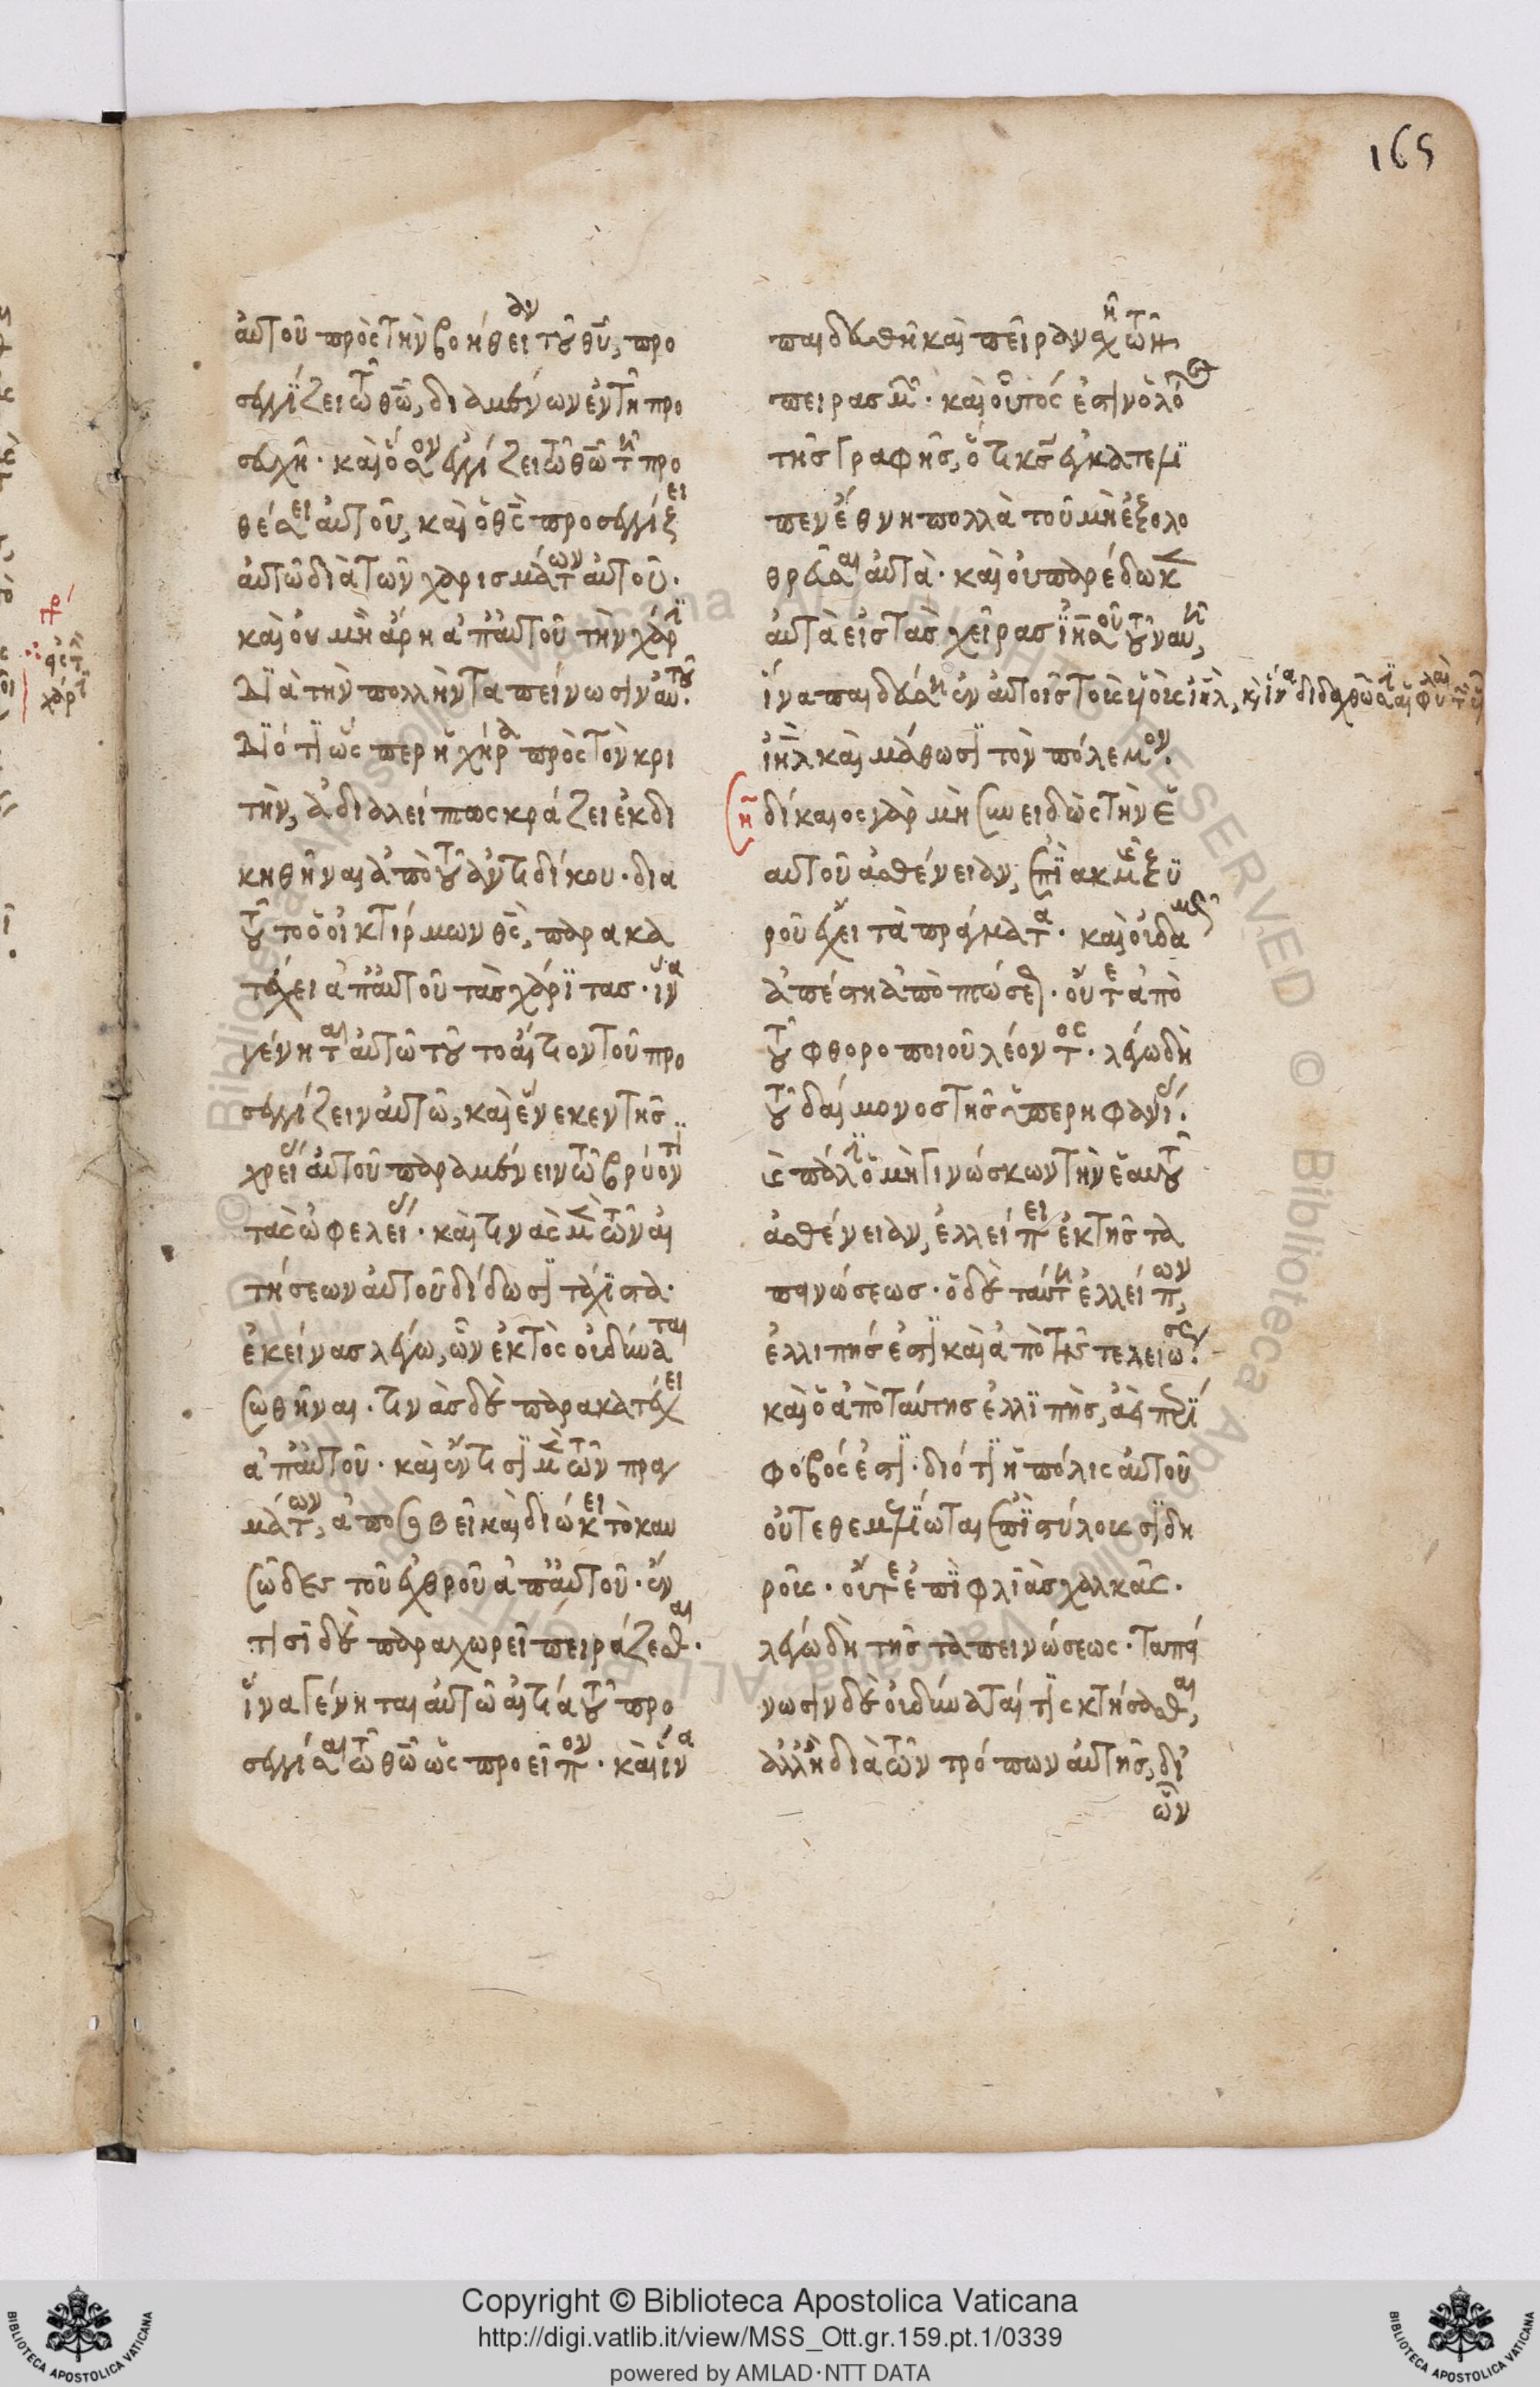 165
αὐτοῦ πρὸς τὴν βοήθειαν τοῦ θυ, προ
σεγγίζει τῶ θω, διαμένων ἐν τῆ προ
σευχῆ. καὶ ὅσον ἐγγίζει τῶ θω τῆ προ
θέσει αὐτοῦ, καὶ ὁ θς προσεγγίζει
αὐτῶ διὰ τῶν χαρισμάτων αὐτοῦ.
καὶ οὐ μὴ ἄρη ἀπ αὐτοῦ τὴν χάριν
διὰ τὴν πολλὴν ταπείνωσιν αὐτοῦ.
διότι ὥσπερ ἡ χήρα πρὸς τὸν κρι
τὴν, ἀδιαλείπτως κράζει ἐκδι
κηθῆναι ἀπὸ τοῦ ἀντιδίκου. δια
τοῦτο ὁ οἰκτίρμων θς, παρακα
τέχει ἀπ αὐτοῦ τὰς χάριτας. ἵνα
γένηται αὐτῶ τοῦτο αἴτιον τοῦ προ
σεγγίζειν αὐτῶ, καὶ ἕνεκεν τῆς
χρείας αὐτοῦ παραμένειν τῶ βρύοντι
τὰς ὠφελείας. καὶ τινὰς μὲν τῶν αἰ
τήσεων αὐτοῦ δίδωσι τάχιστα.
ἐκείνας λέγω, ὧν ἐκτὸς οὐ δύναται
σωθῆναι. τινὰς δὲ παρακατέχει
ἀπ αὐτοῦ. καὶ ἔν τισι μὲν τῶν πραγ
μάτων, ἀποσοβεῖ καὶ διώκει τὸ καυ
σῶδες τοῦ ἐχθροῦ ἀπ αὐτοῦ. ἔν
τισι δὲ παραχωρεῖ πειράζεσθαι.
ἵνα γένηται αὐτῶ αἰτία τοῦ προ
σεγγίσαι τῶ θω ὡς προεῖπον. καὶ ἵνα
παιδευθῆ καὶ πεῖραν σχῆ τῶν
πειρασμῶν. καὶ οὗτός ἐστιν ὁ λόγος
τῆς γραφῆς, ὅτι κς ἐγκατέλι
πεν ἔθνη πολλὰ τοῦ μὴ ἐξολο
θρεῦσαι αὐτὰ. καὶ οὐ παρέδωκεν
αὐτὰ εἰς τὰς χεῖρας ἰησοῦ τοῦ ναυῆ,
ἵνα παιδεύση ἐν αὐτοῖς τοὺς υἱοὺς ιηλ, καὶ ἵνα διδαχθῶσιν αἱ φυλαὶ τῶν υἱῶν
ιηλ καὶ μάθωσι τὸν πόλεμον.
δίκαιος γὰρ μὴ συνειδὼς τὴν ἑ
αυτοῦ ἀσθένειαν, ἐπὶ ἀκμῆς ξυ
ροῦ ἔχει τὰ πράγματα. καὶ οὐδαμῶς
ἀπέστη ἀπὸ πτώσεως. οὔτε ἀπὸ
τοῦ φθοροποιοῦ λέοντος. λέγω δὴ
τοῦ δαίμονος τῆς ὑπερηφανίας.
καὶ πάλιν ὁ μὴ γινώσκων τὴν ἑαυτοῦ
ἀσθένειαν, ἐλλείπει ἐκ τῆς τα
πεινώσεως. ὁ δὲ ταύτης ἐλλείπων,
ἐλλιπής ἐστι καὶ ἀπὸ τῆς τελειώσεως.
καὶ ὁ ἀπὸ ταύτης ἐλλιπὴς, ἀεὶ περί
φοβός ἐστι. διότι ἡ πόλις αὐτοῦ
οὔτε θεμελίωται ἐπὶ στύλοις σιδη
ροῖς. οὔτε ἐπὶ φλιὰς χαλκᾶς.
λέγω δὴ τῆς ταπεινώσεως. ταπεί
νωσιν δὲ οὐ δύναταί τις κτήσασθαι,
ἀλλ ἢ διὰ τῶν τρόπων αὐτῆς, δι
ὧν
Copyright © Biblioteca Apostolica Vaticana
http://digi.vatlib.it/view/MSS_Ott.gr.159.pt.1/0339
powered by AMLAD·NTT DATA